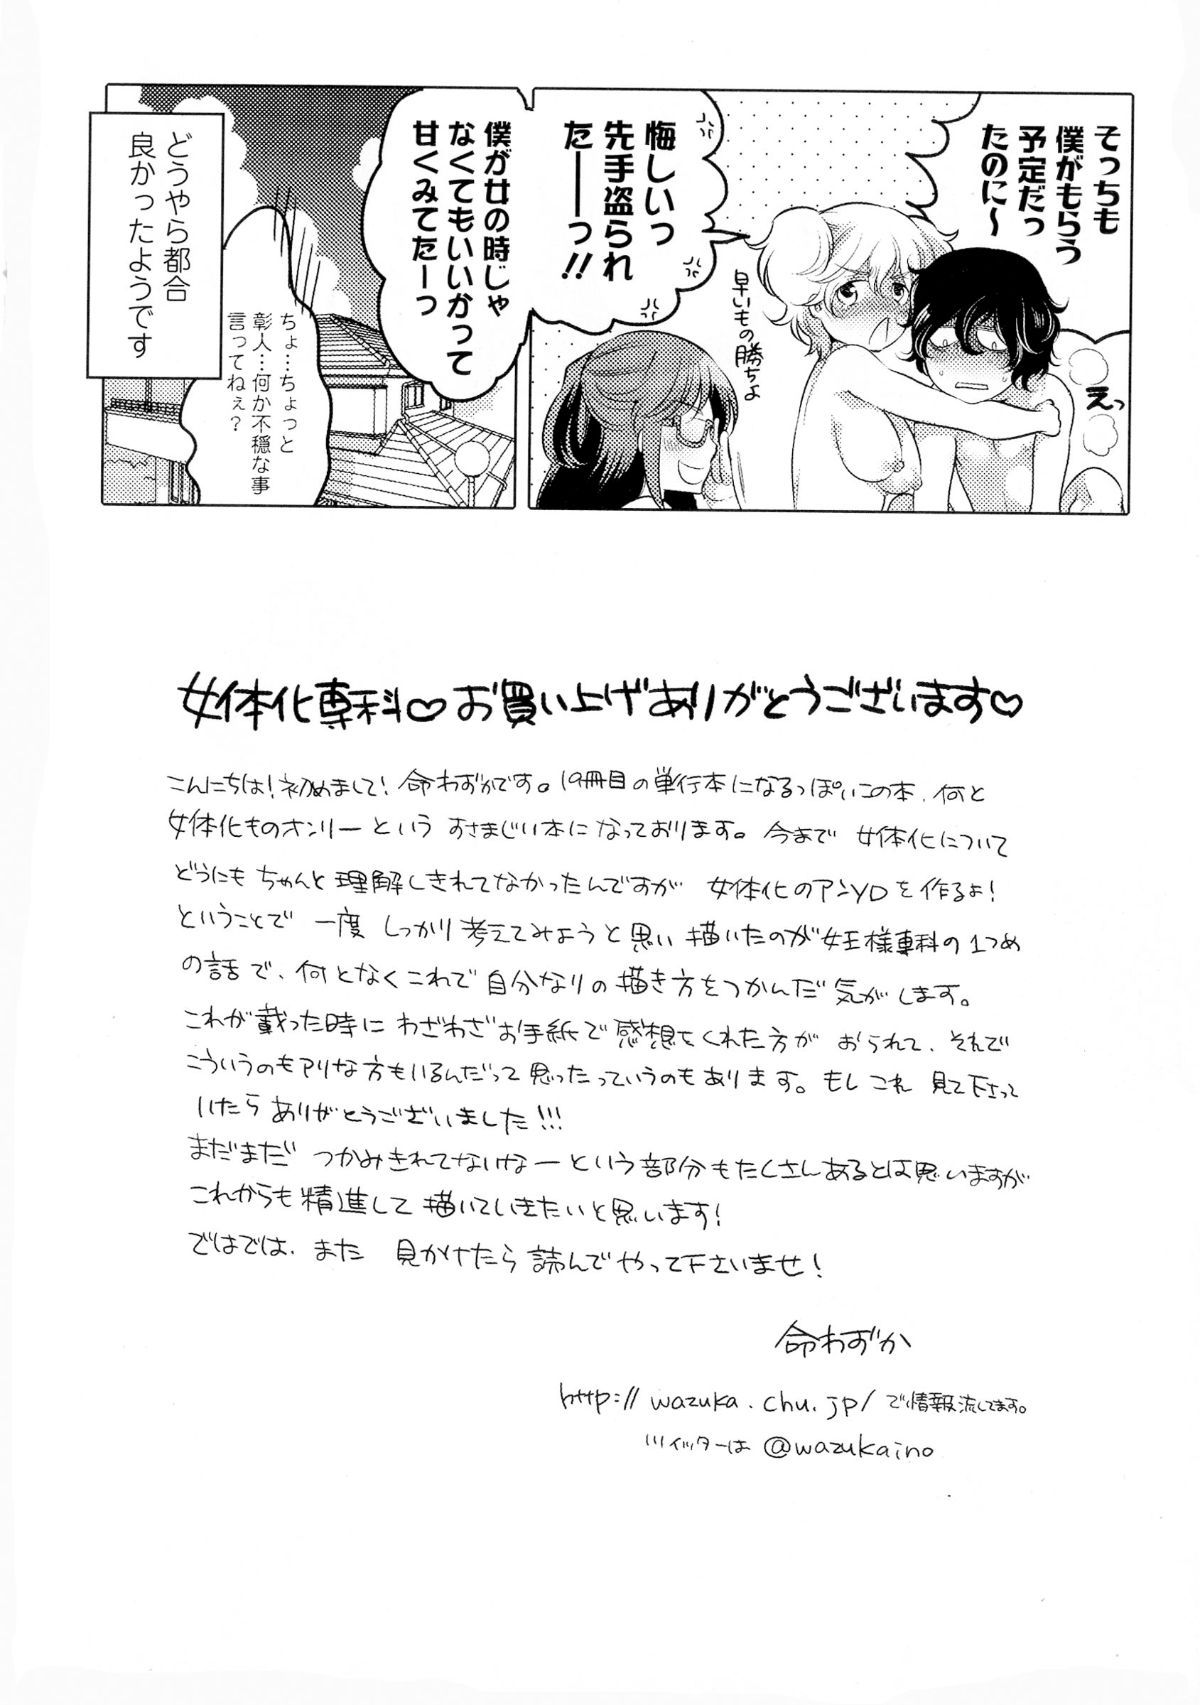 そっちも
僕がもらう
予定だっ
たのに〜
えっ
悔しいっ
先手盗られ
たーーっ!!
早いもの勝ちよ
僕が女の時じゃ
なくてもいいかって
甘くみてたーっ
ちょ…ちょっと
彰人…何か不穏な事
言ってねぇ？
どうやら都合
良かったようです
女体化専科♡お買い上げありがとうございます♡
こんにちは!初めまして!命わずかです。19冊目の単行本になるっぽいこの本、何と
女体化ものオンリーという すさまじい本になっております。今まで 女体化について
どうにもちゃんと理解しきれてなかったんですが 女体化のアンソロを作るよ!
ということで 一度 しっかり考えてみようと思い描いたのが女王様専科の1つめ
の話で、何となくこれで自分なりの描き方をつかんだ気がします。
これが載った時にわざわざお手紙で感想をくれた方が おられて、それで
こういうのもアリな方もいるんだって思ったっていうのもあります。もしこれ 見て下さって
いたらありがとうございました!!!
まだまだ つかみきれてないなーという部分もたくさんあるとは思いますが
これからも精進して描いていきたいと思います!
ではでは、また 見かけたら読んでやって下さいませ!
命わずか
http://wazuka.chu.jp/で情報流してます。
ツイッターは @wazukaino